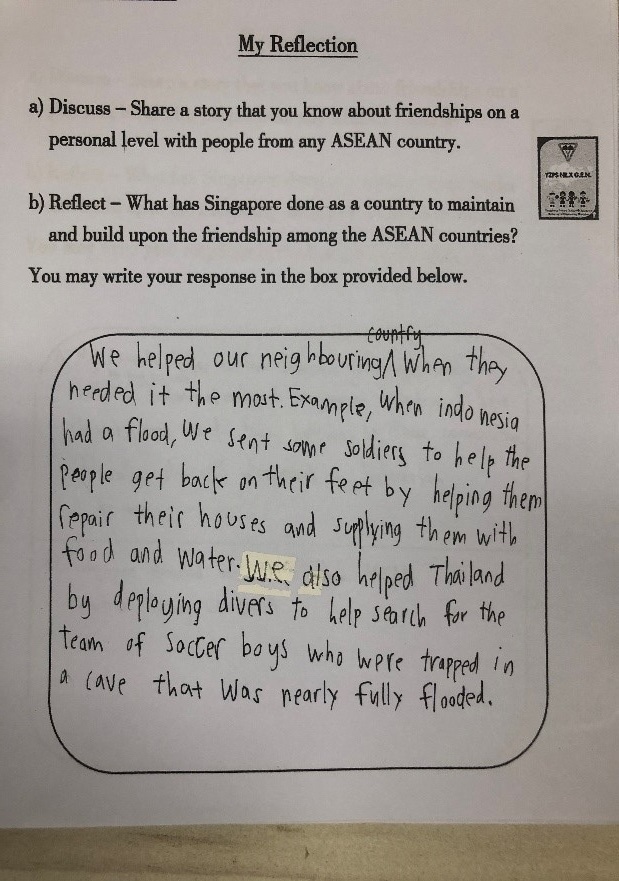 My Reflection
a) Discuss – Share a story that you know about friendships on a
personal level with people from any ASEAN country.
b) Reflect – What has Singapore done as a country to maintain
and build upon the friendship among the ASEAN countries?
You may write your response in the box provided below.
country
We helped our neighbouring/\ When they
needed it the most. Example, When indonesia
had a flood, We sent some soldiers to help the
People get back on their feet by helping them
repair their houses and supplying them with
food and Water. We also helped Thailand
by deploying divers to help search for the
team of Soccer boys who were trapped in
a cave that Was nearly fully flooded.